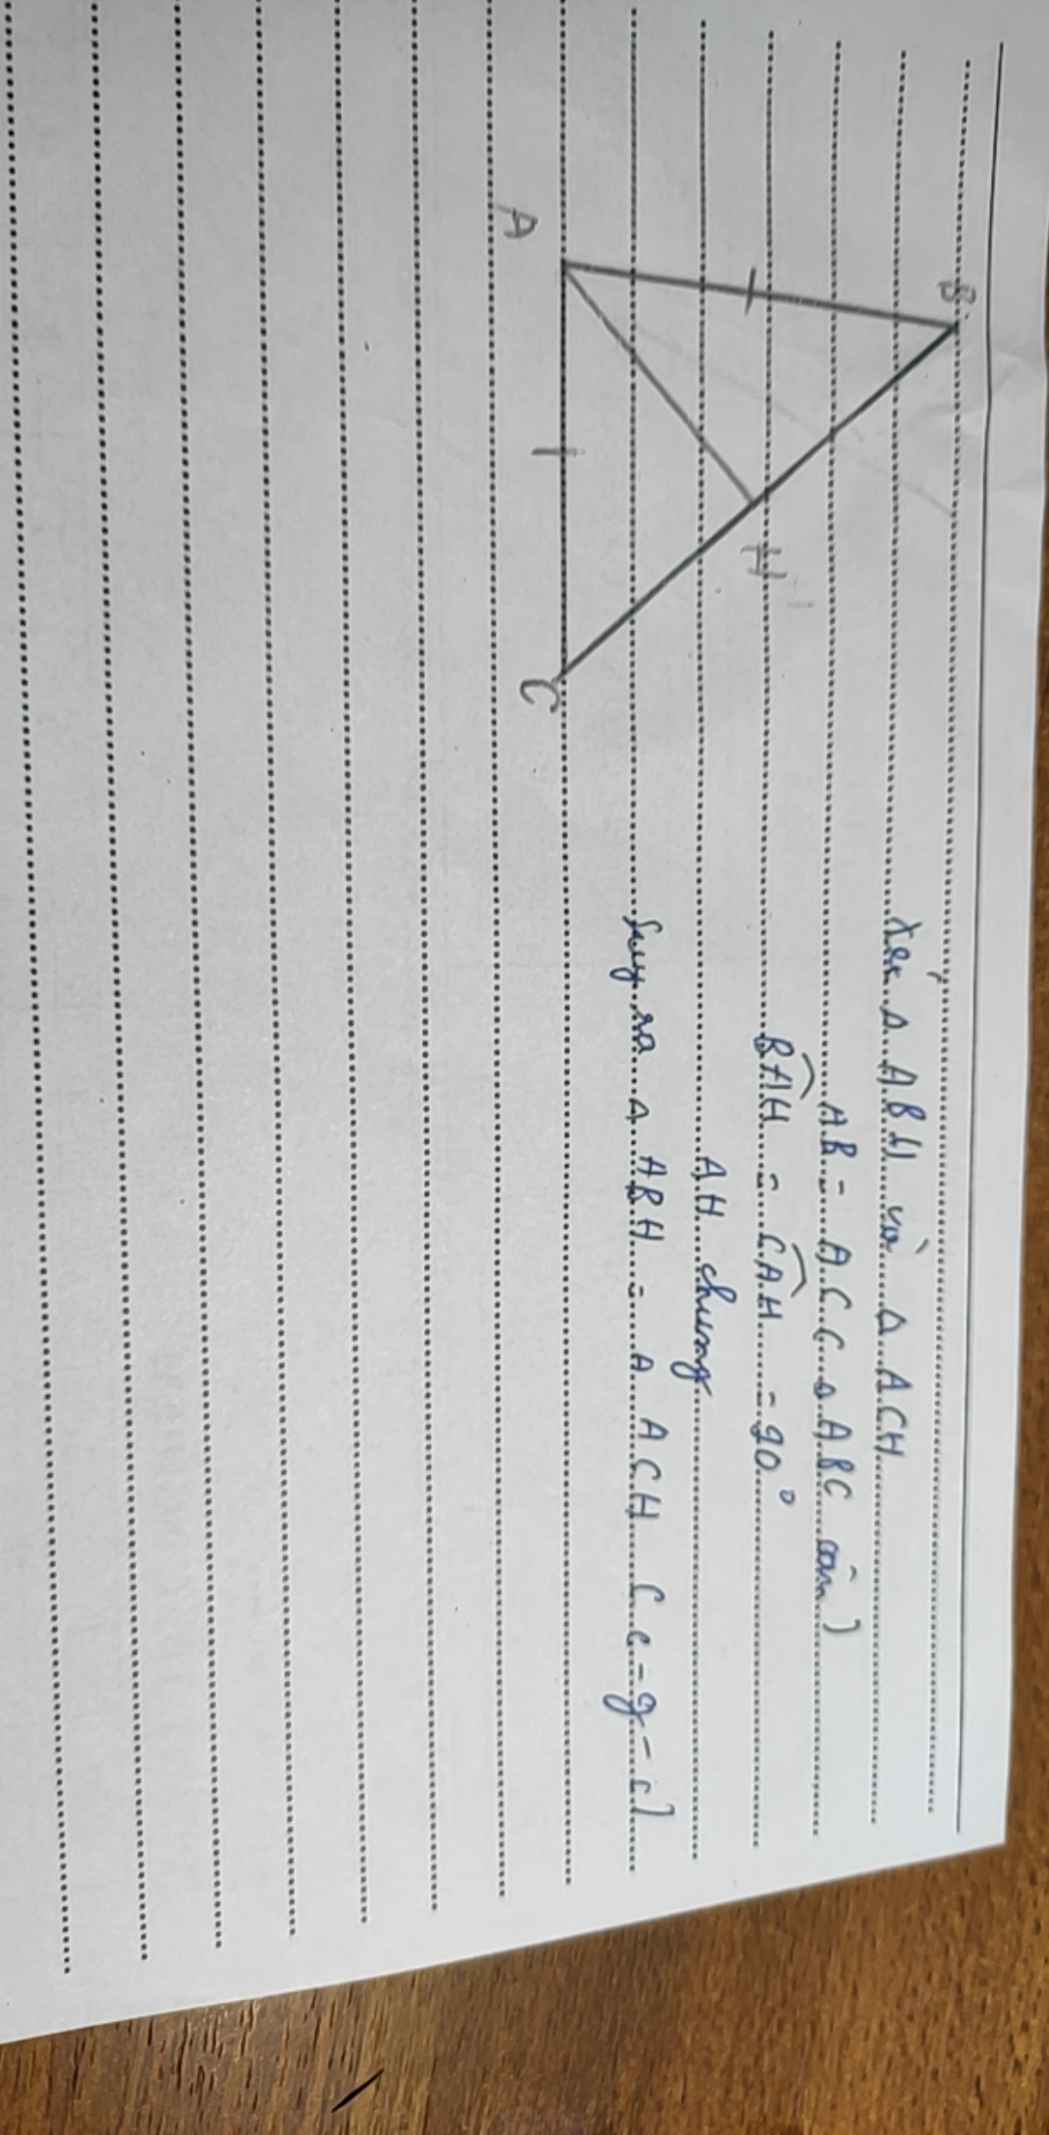 B
A
H
C
Xét Δ ABH và Δ ACH
AB = AC ( Δ ABC cân )
BAH = CAH = 90°
AH chung
Suy ra Δ ABH = Δ ACH ( c - g - c )